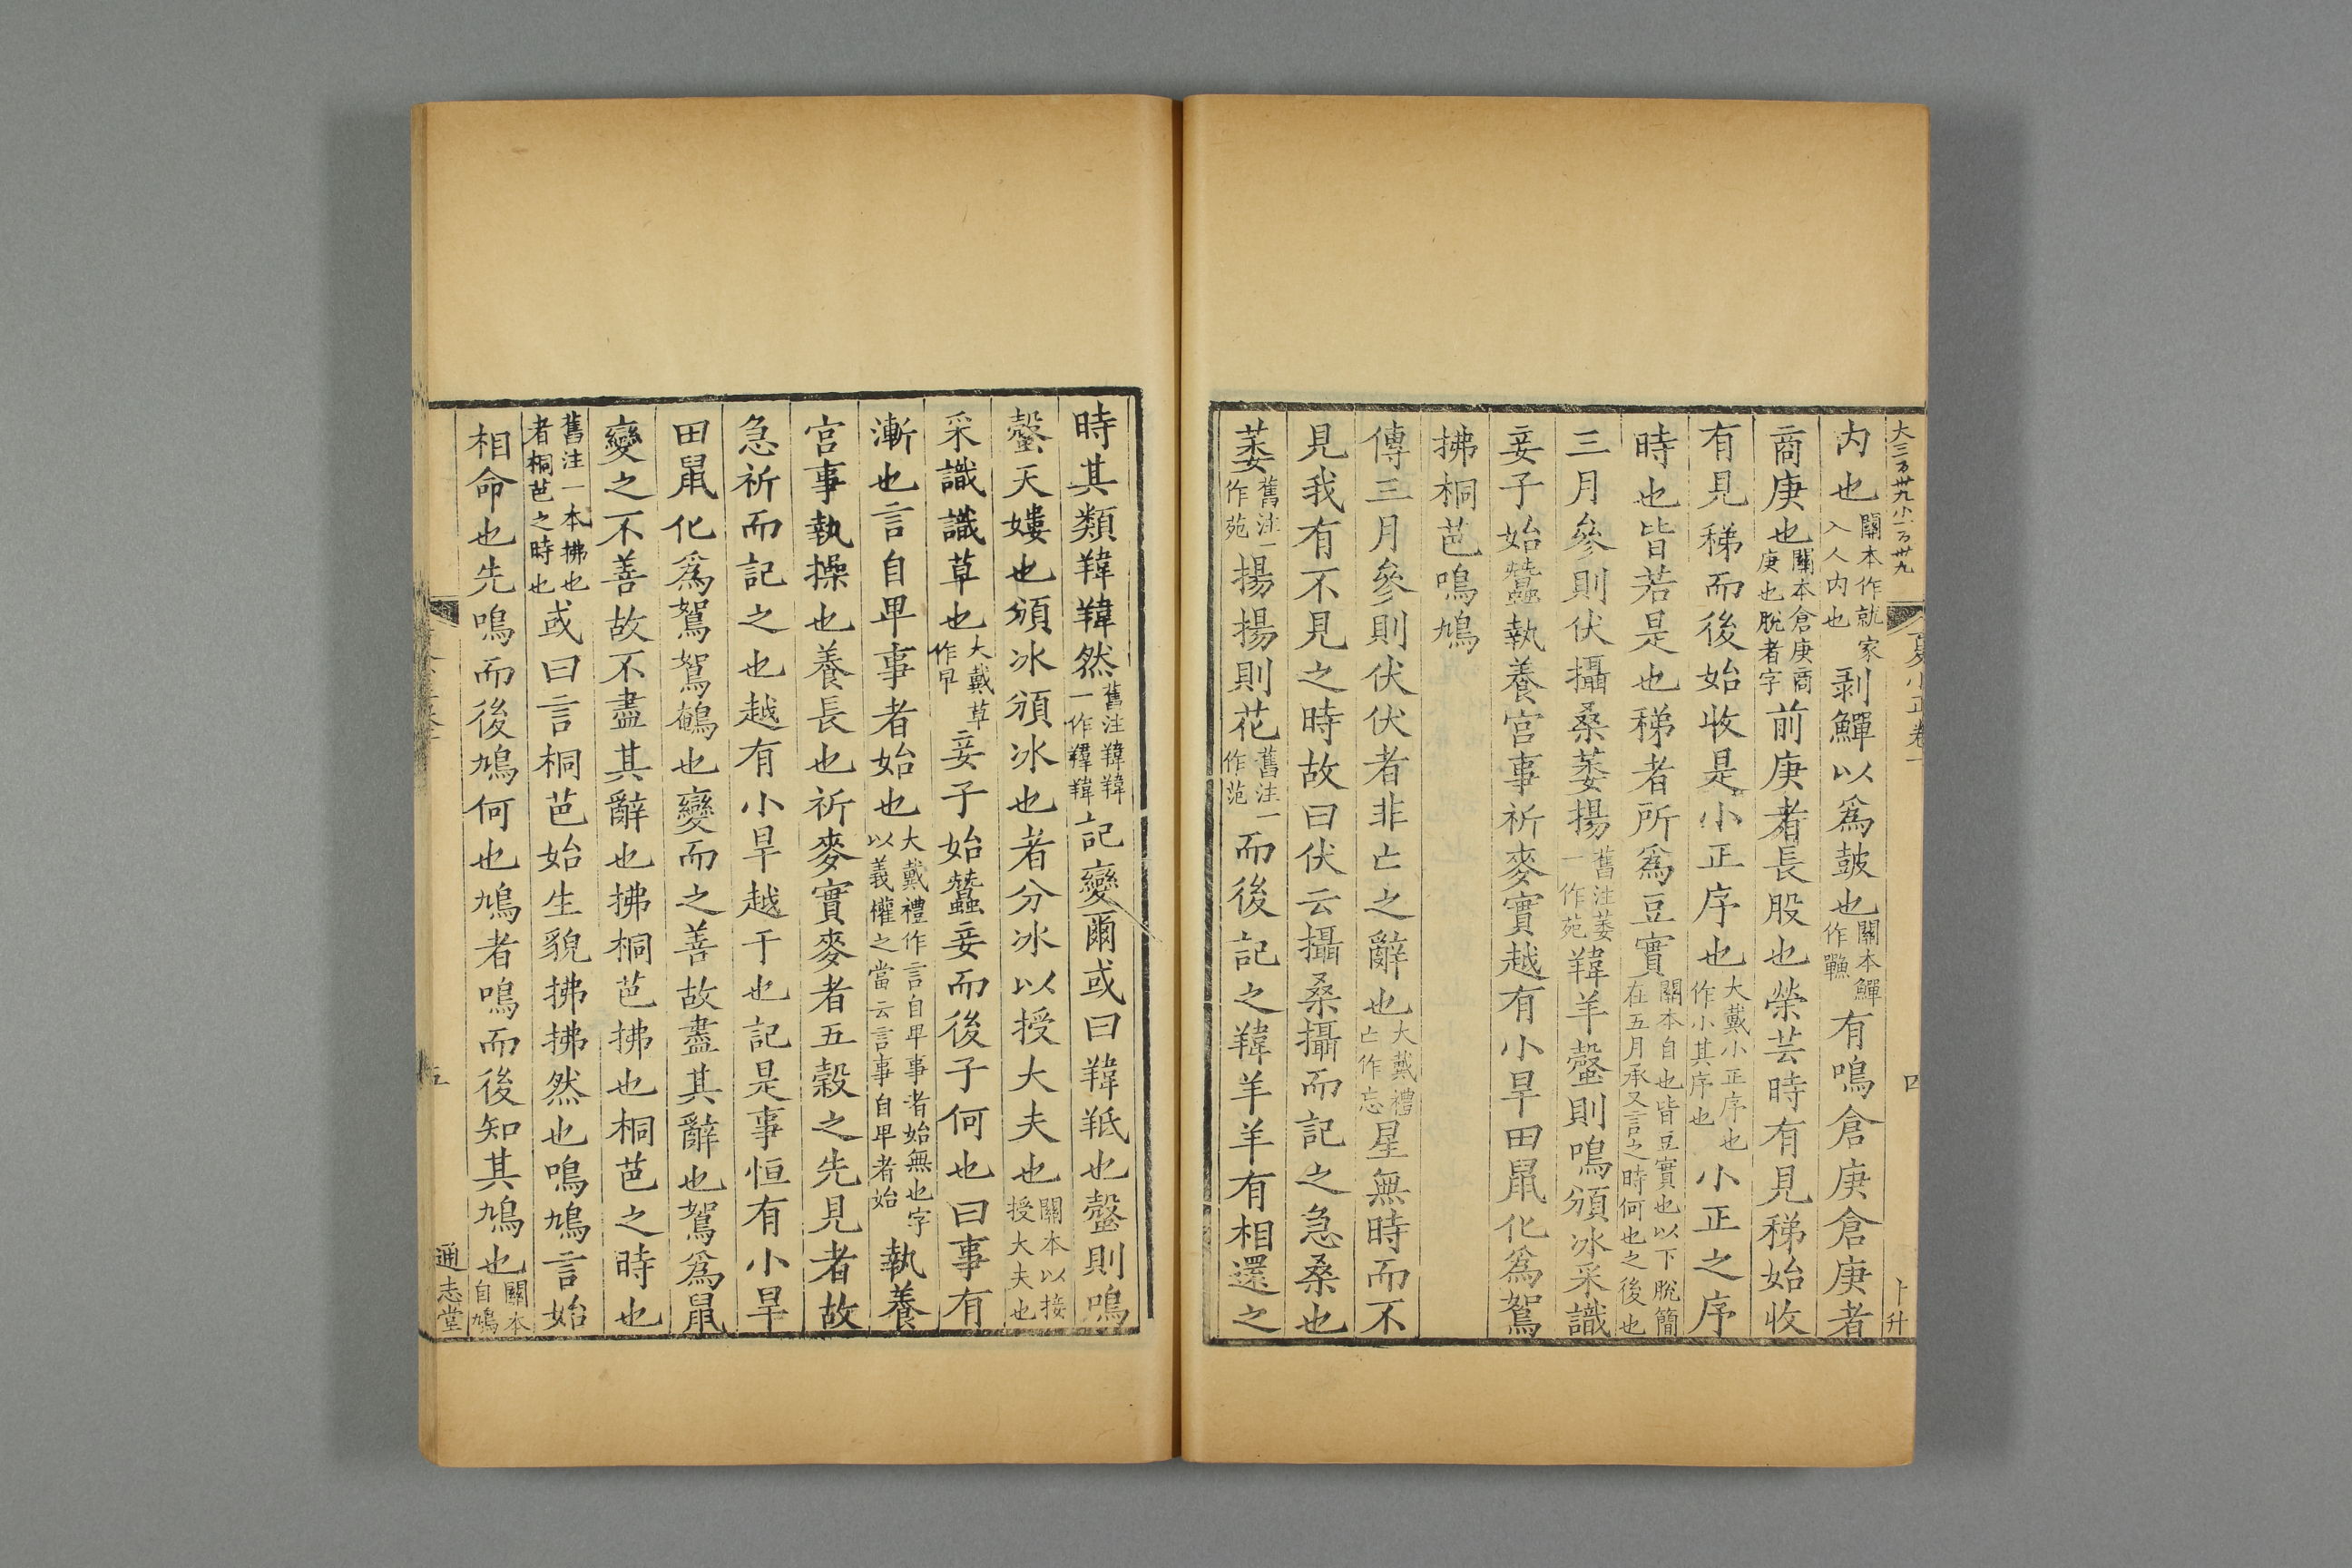 大三百卅九小一百卅九
夏小正卷一
四
卜升
内也關本作就家入人内也剥鱓以爲鼓也關本鱓作鼉有鳴倉庚倉庚者
商庚也關本倉庚商庚也脫者字前庚者長股也榮芸時有見稊始收
有見稊而後始收是小正序也大戴小正序也作小其序也小正之序
時也皆若是也稊者所爲豆實關本自也皆豆實也以下脫簡在五月承又言之時何也之後也
三月參則伏攝桑萎揚舊注萎一作苑韋羊螜則鳴頒冰采識
妾子始蠶執養宫事祈麥實越有小旱田鼠化爲鴽
拂桐芭鳴鳩
傳三月參則伏伏者非亡之辭也大戴禮亡作忘星無時而不
見我有不見之時故曰伏云攝桑攝而記之急桑也
萎舊注一作苑揚揚則花舊注一作苑而後記之羵羊羊有相還之
時其類羵羵然舊注羵羵一作羵羵記變爾或曰羵羝也螜則鳴
螜天螻也頒冰頒冰也者分冰以授大夫也關本以接授大夫也
采識識草也大戴草作早妾子始蠶妾而後子何也曰事有
漸也言自卑事者始也大戴禮作言自卑事者始無也字以義權之當云言事自卑者始執養
宫事執操也養長也祈麥實麥者五穀之先見者故
急祈而記之也越有小旱越于也記是事恒有小旱
田鼠化爲鴽鴽鵪也變而之善故盡其辭也鴽爲鼠
變之不善故不盡其辭也拂桐芭拂也桐芭之時也
舊注一本拂也者桐芭之時也或曰言桐芭始生貌拂拂然也鳴鳩言始
相命也先鳴而後鳩何也鳩者鳴而後知其鳩也關本自鳩
五
通志堂